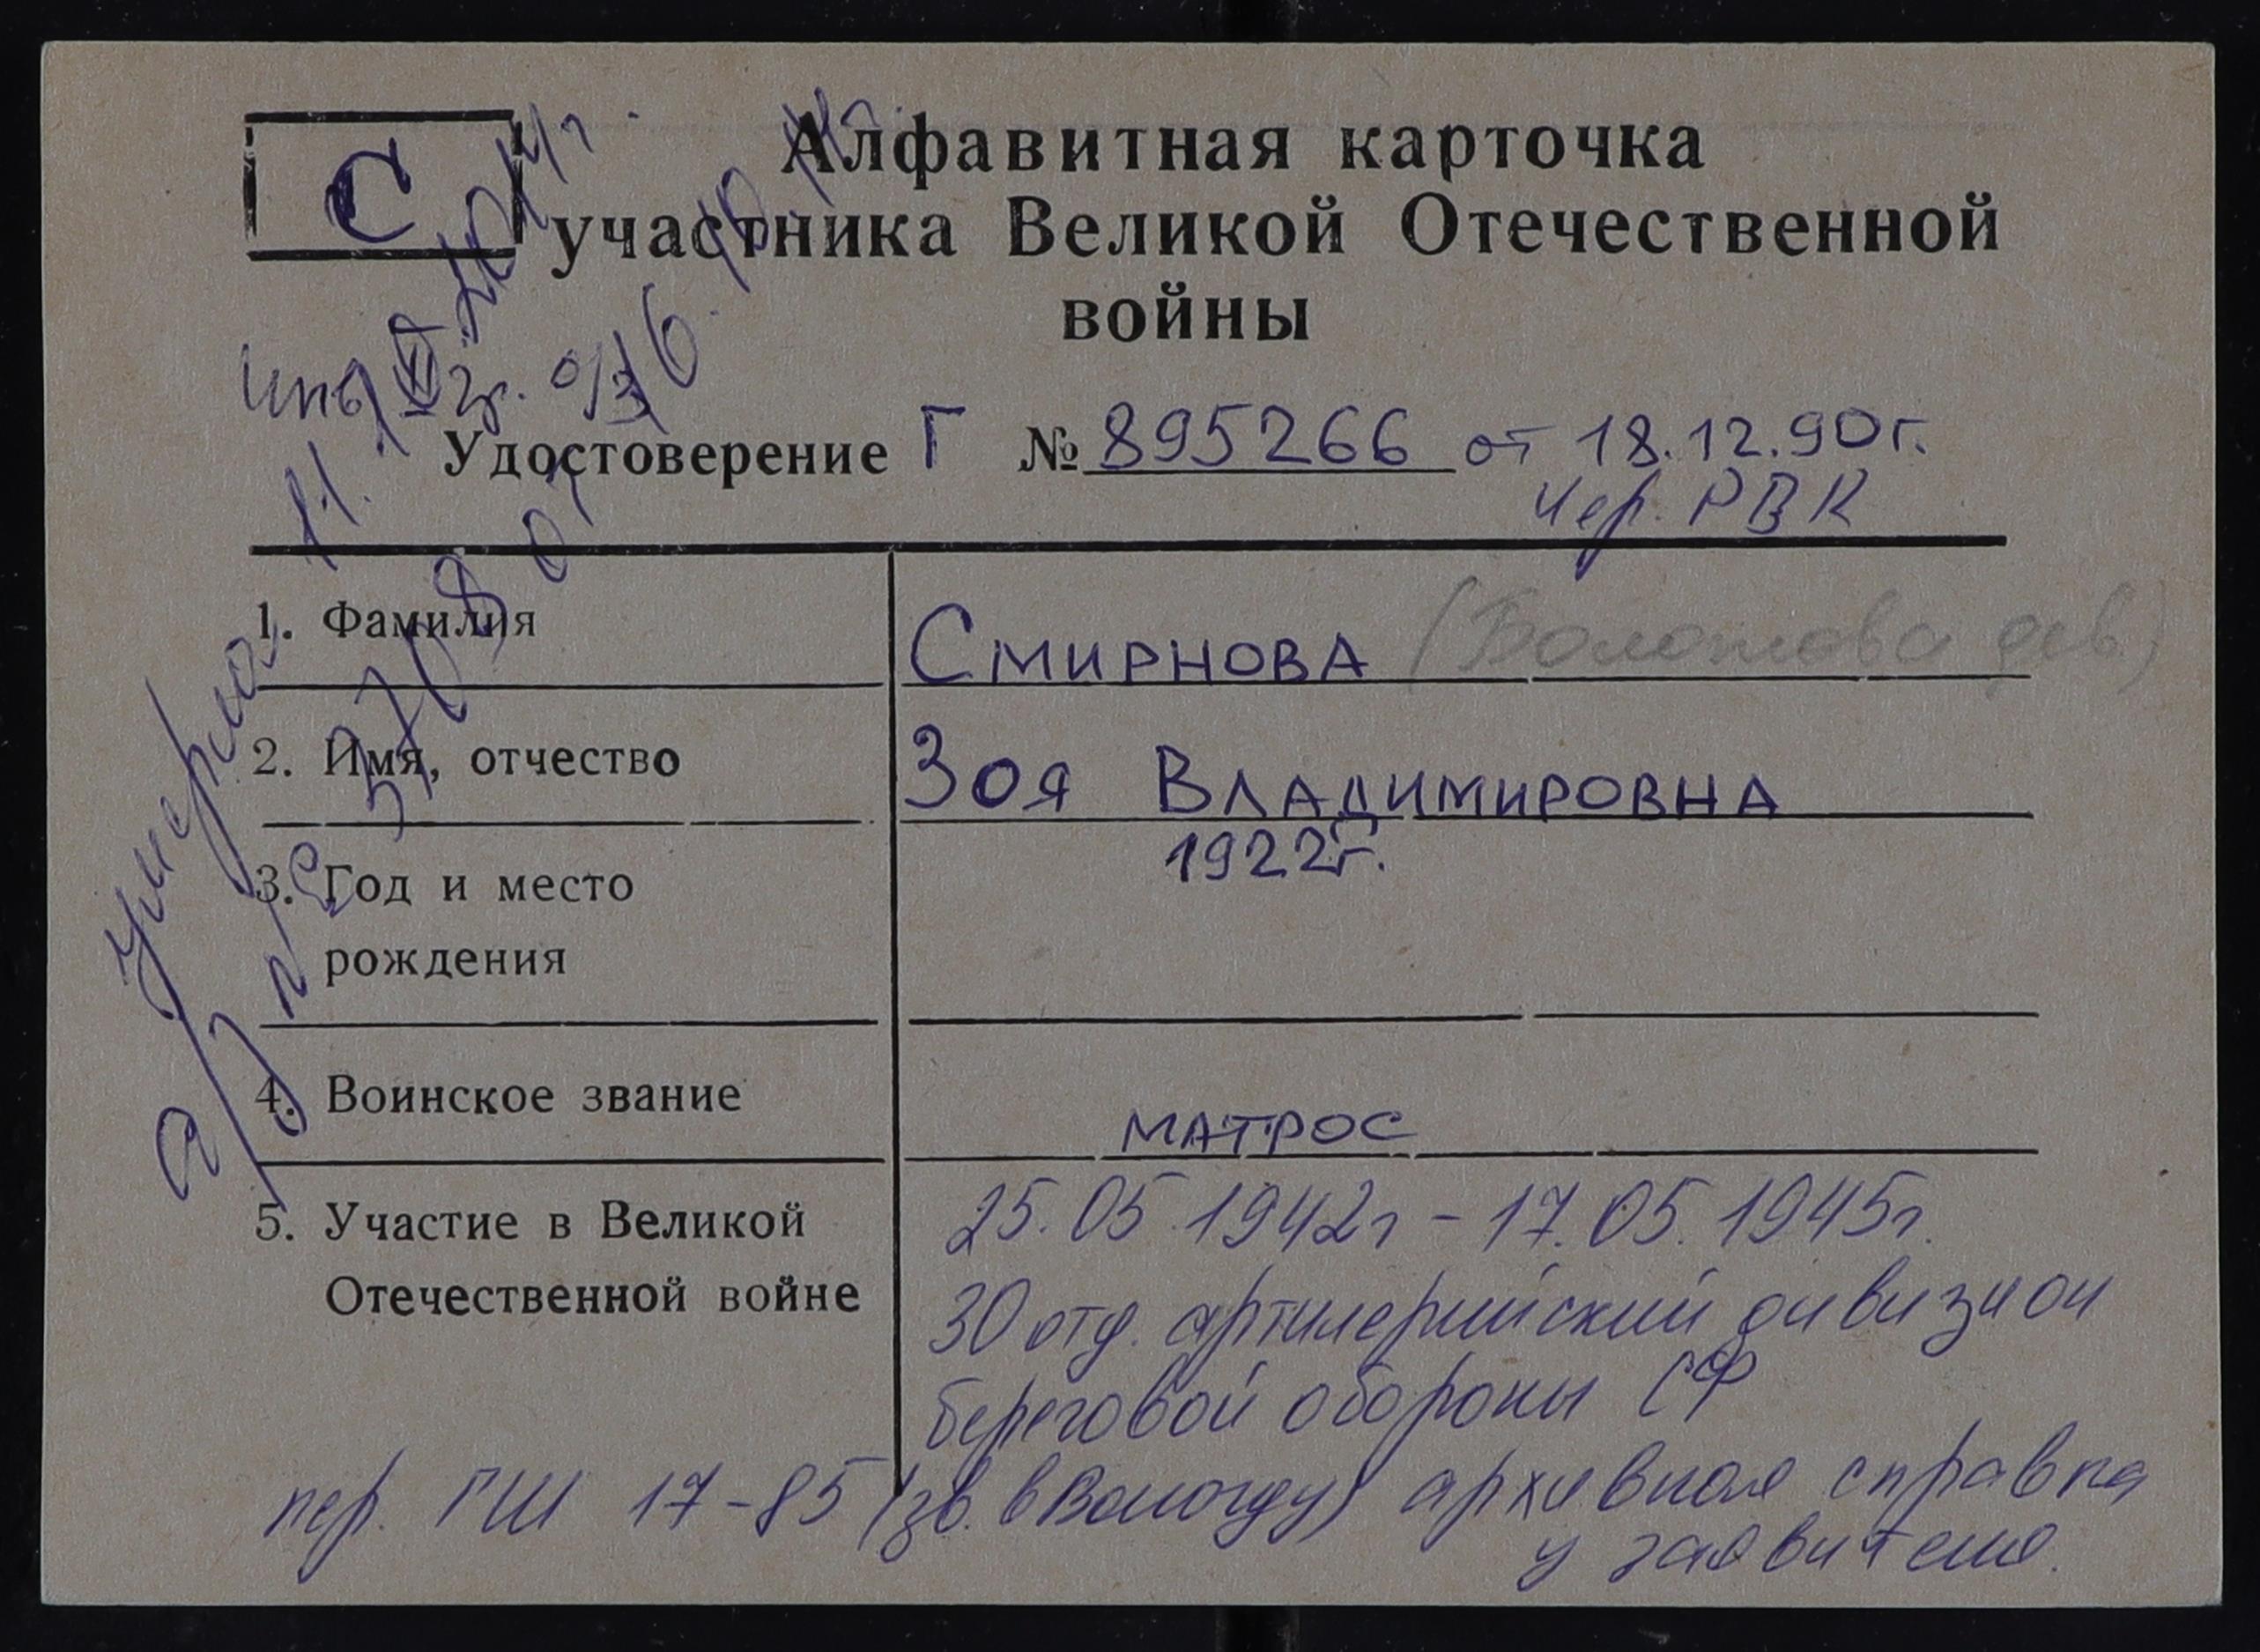 С
Алфавитная карточка
участника Великой Отечественной
войны
Удостоверение Г № 895266 от 18.12.90г.
Чер. РВК
1. Фамилия
Смирнова (Болотова дев.)
2. Имя, отчество
Зоя Владимировна
3. Год и место
рождения
1922г.
4. Воинское звание
матрос
5. Участие в Великой
Отечественной войне
25.05.1942г – 17.05.1945г.
30 отд. артилерийский дивизион
береговой обороны СФ
пер. ГШ 17-85 (зв. в Вологду) архивная справка
у заявителя.
умерла